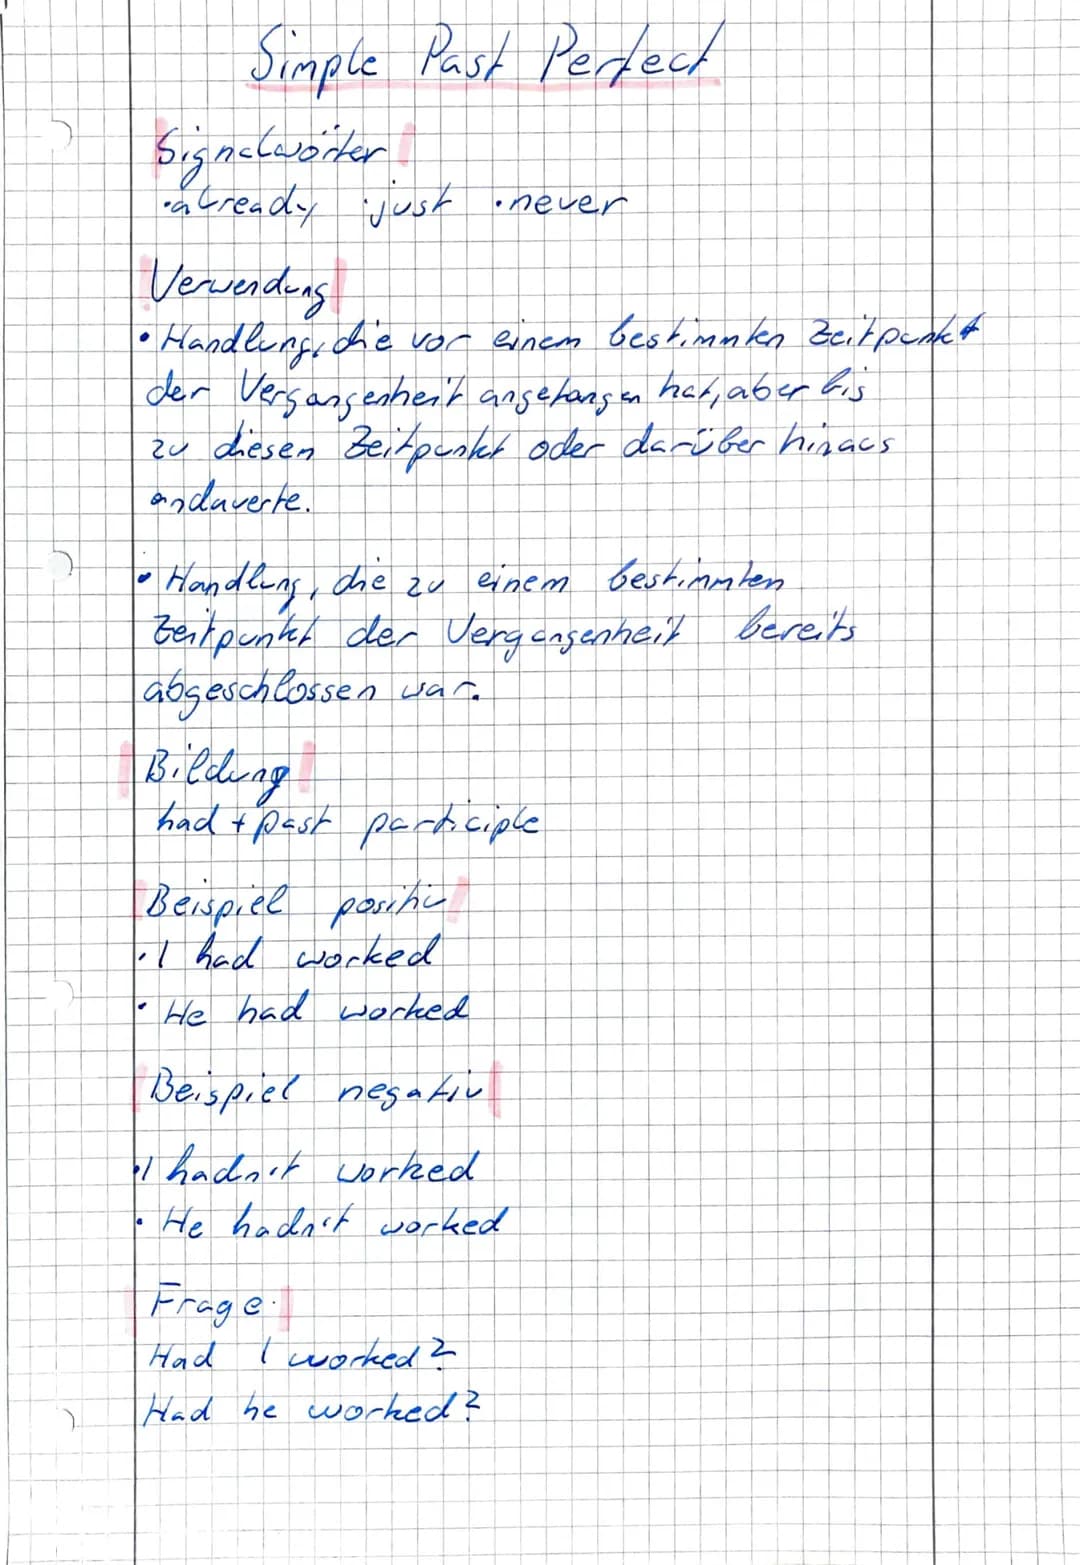 Simple Past Perfect
Signalwörter
•already •just •never
Verwendung
• Handlung, die vor einem bestimmten Zeitpunkt
der Vergangenheit angefangen hat, aber bis
zu diesen Zeitpunkt oder darüber hinaus
andauerte.
• Handlung, die zu einem bestimmten
Zeitpunkt der Vergangenheit bereits
abgeschlossen war.
Bildung
had + past participle
Beispiel positiv
• I had worked
• He had worked
Beispiel negativ
• I hadn't worked
• He hadn't worked
Frage
Had I worked?
Had he worked?